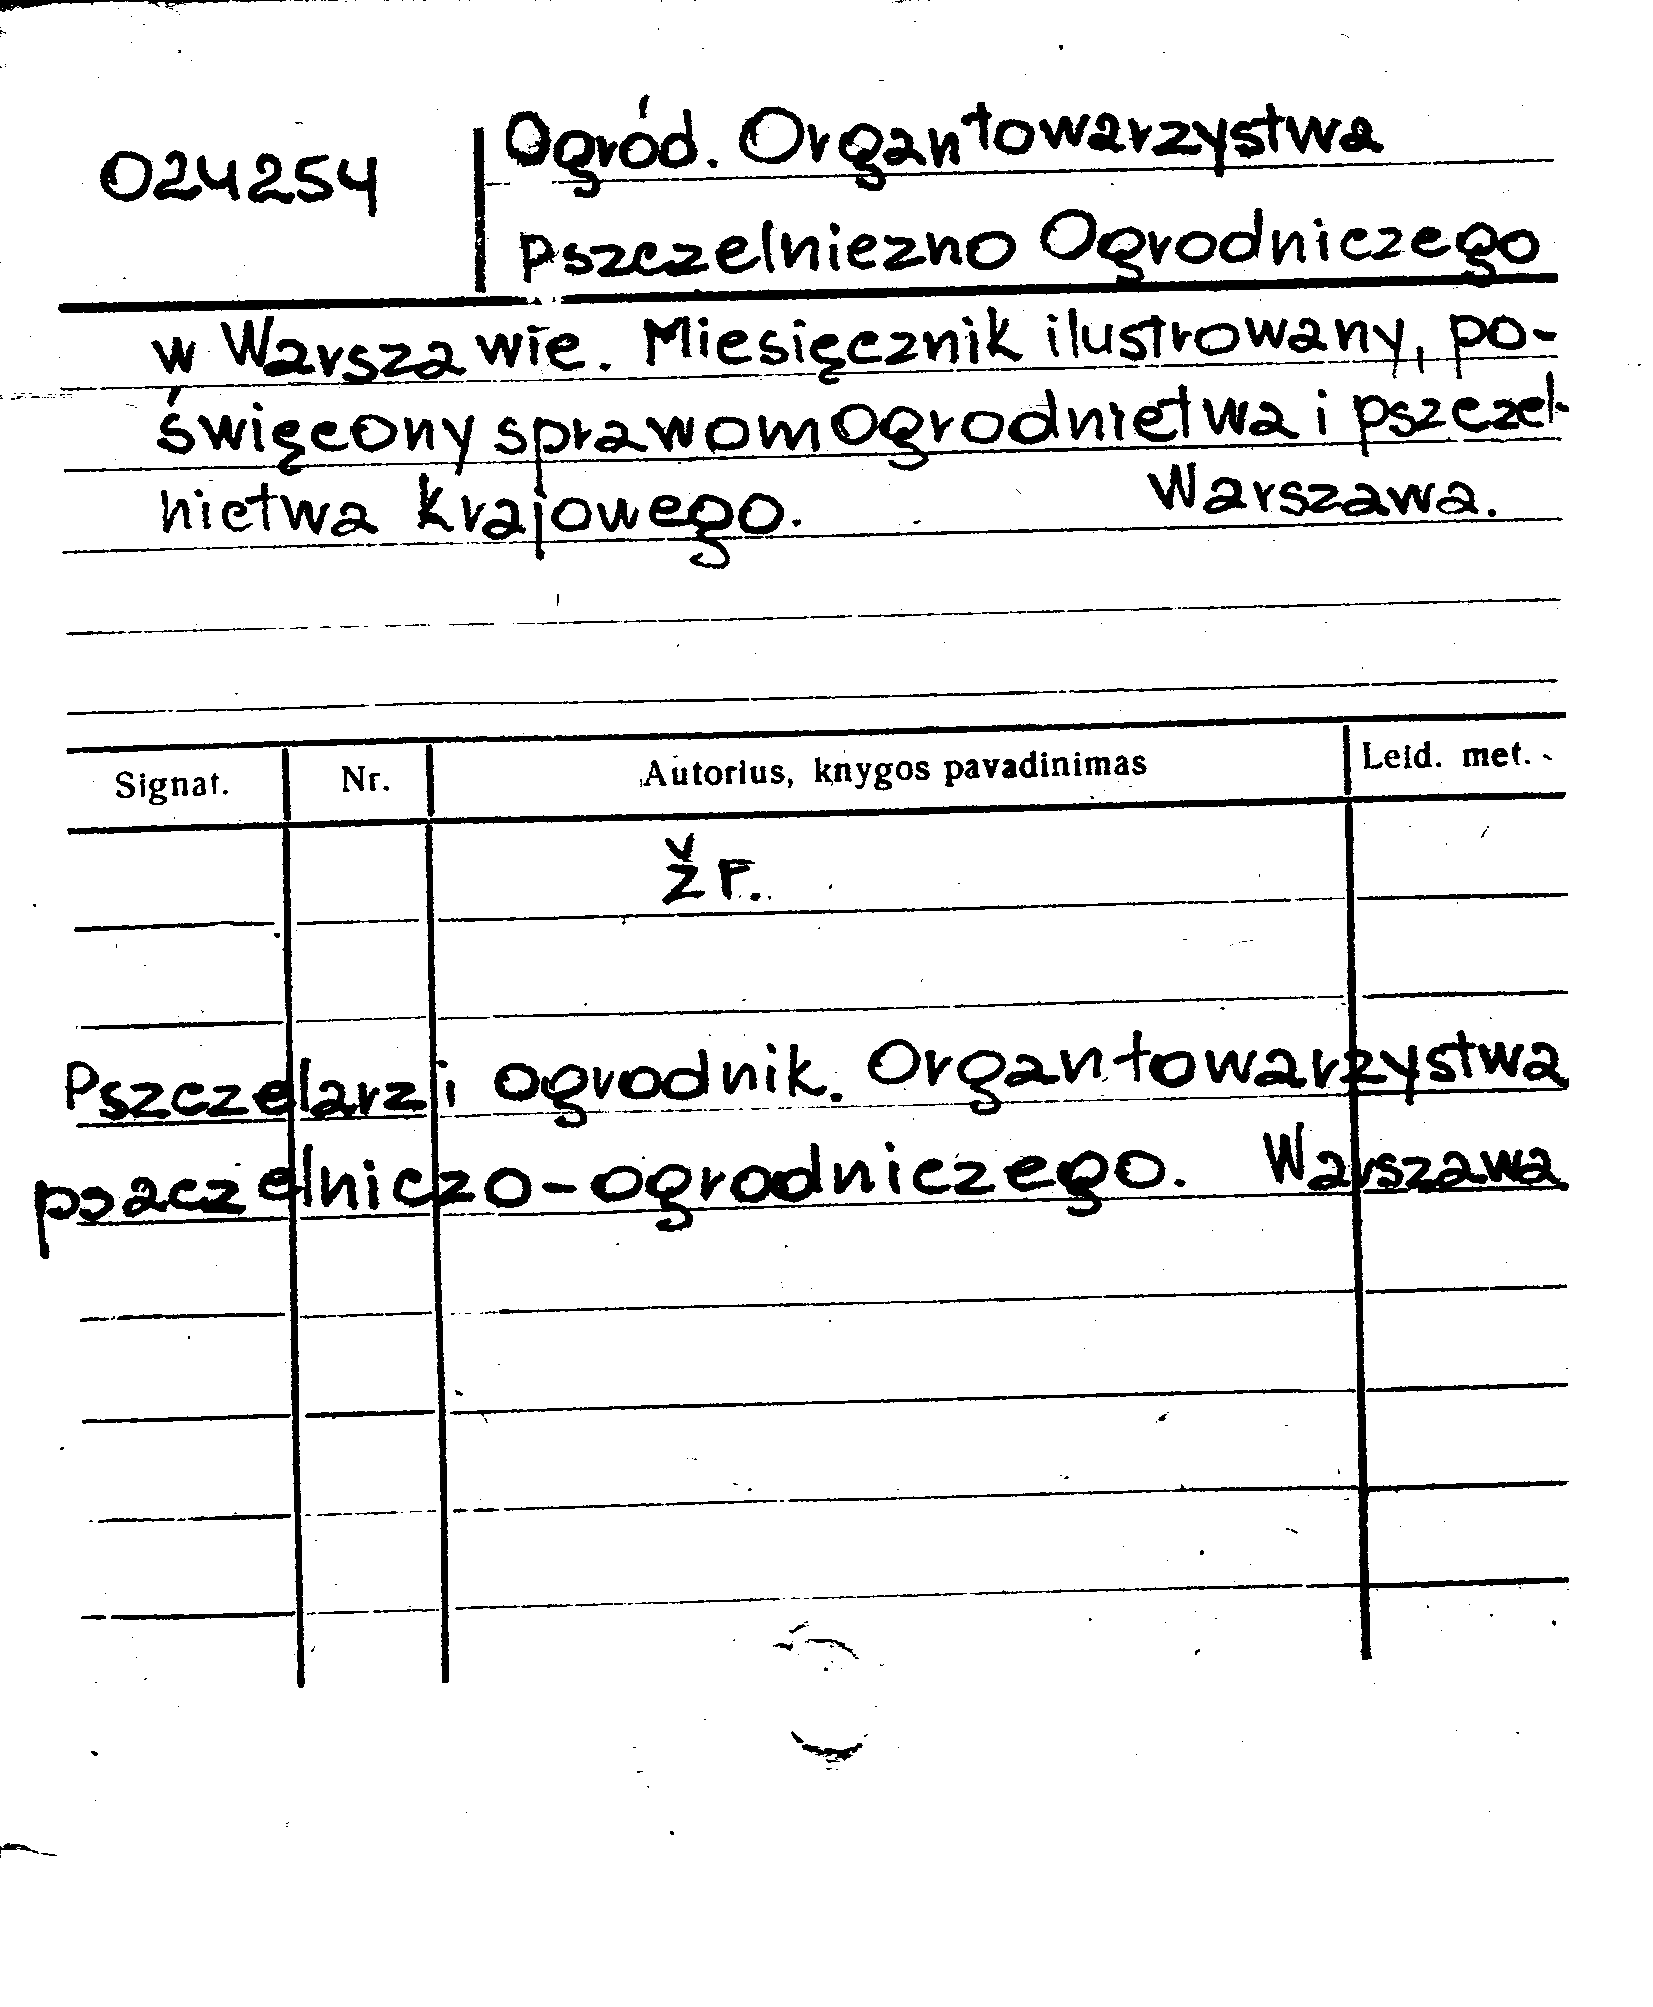 024254
Ogród. Organ towarzystwa
pszczelniezno Ogrodniczego
w Warszawie. Miesięcznik ilustrowany, po-
święcony sprawom ogrodnictwa i pszczel-
nictwa krajowego. Warszawa.
Signat. Nr. Autorius, knygos pavadinimas Leid. met.
Žr.
Pszczelarz i ogrodnik. Organ towarzystwa
psaczelniczo-ogrodniczego. Warszawa